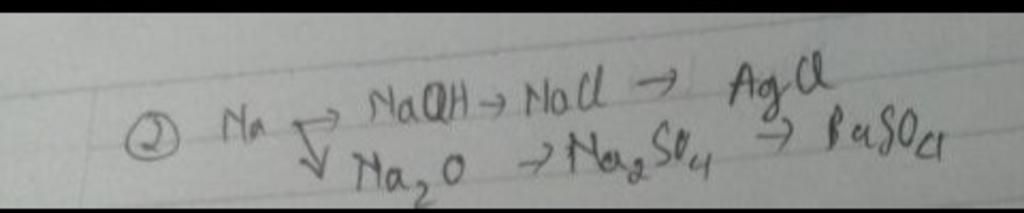 ② Na → NaOH → NaCl → AgCl
↓ Na₂O → Na₂SO₄ → BaSO₄